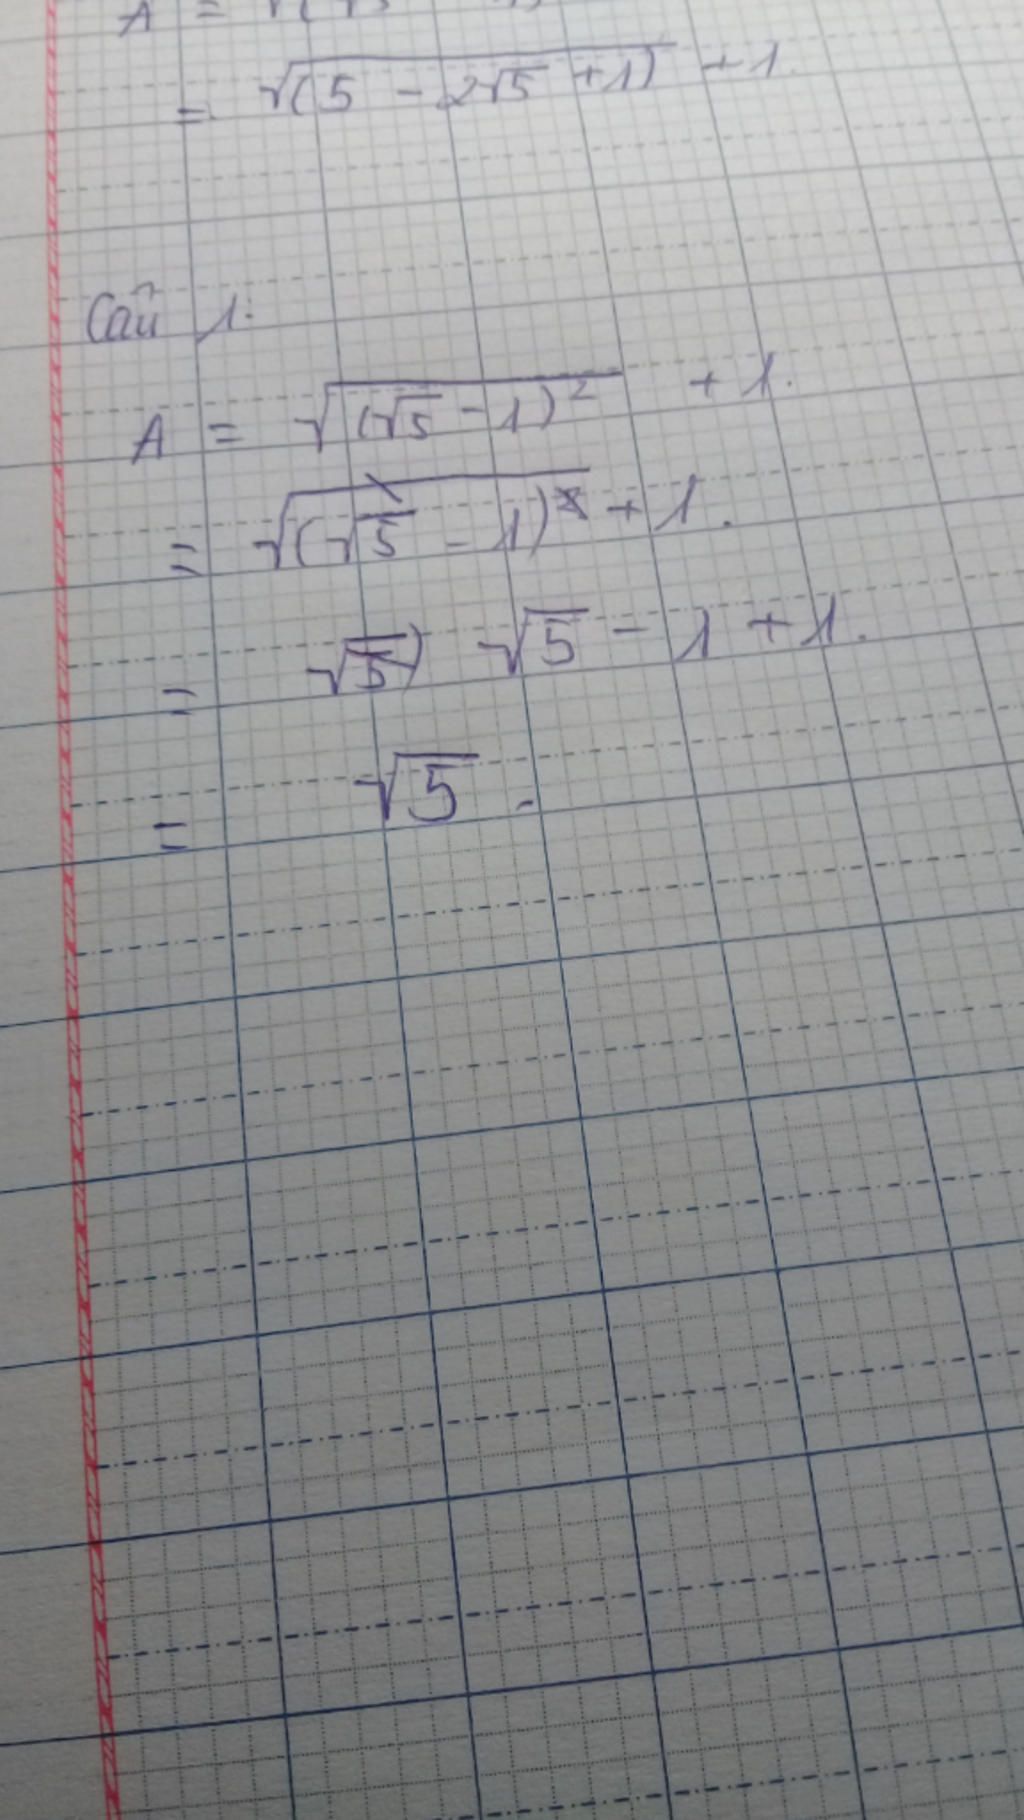 A = √(√5
= √(5 - 2√5 + 1) + 1.
Câu 1:
A = √(√5 - 1)² + 1.
= √(√5 - 1)² + 1.
= √5) √5 - 1 + 1.
= √5.